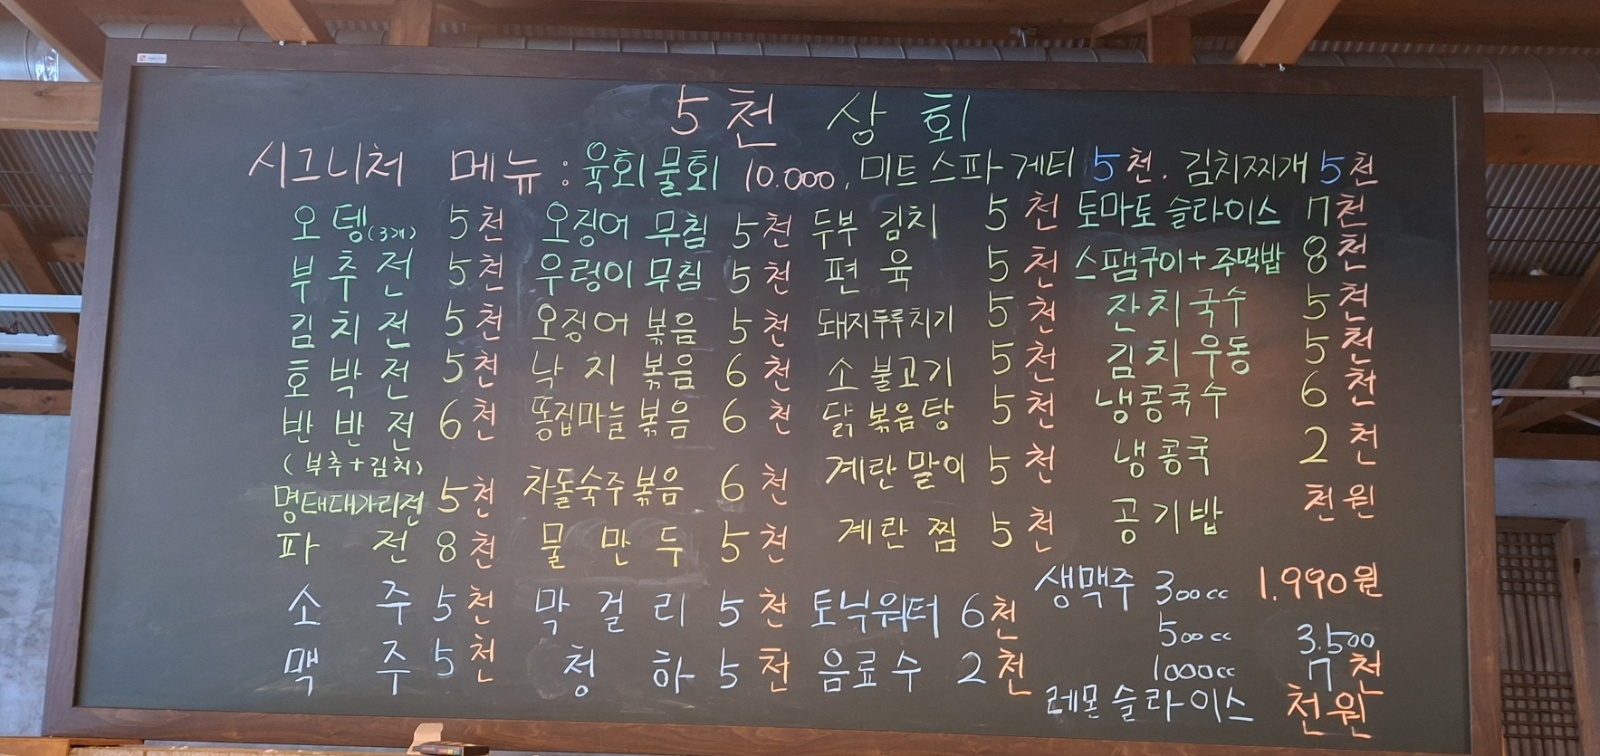 5천 상회
시그니처 메뉴 : 육회물회 10.000, 미트스파게티 5천. 김치찌개 5천
오뎅(3개) 5천 오징어 무침 5천 두부 김치 5천 토마토 슬라이스 7천
부추전 5천 우렁이 무침 5천 편육 5천 스팸구이+주먹밥 8천
김치전 5천 오징어 볶음 5천 돼지두루치기 5천 잔치국수 5천
호박전 5천 낙지 볶음 6천 소불고기 5천 김치우동 5천
반반전 6천 똥집마늘볶음 6천 닭볶음탕 5천 냉콩국수 6천
(부추+김치)
명태대가리전 5천 차돌숙주볶음 6천 계란말이 5천 냉콩국 2천
파전 8천 물만두 5천 계란찜 5천 공기밥 천원
소주 5천 막걸리 5천 토닉워터 6천 생맥주 300cc 1.990원
500cc 3.500
맥주 5천 청하 5천 음료수 2천 1000cc 7천
레몬슬라이스 천원